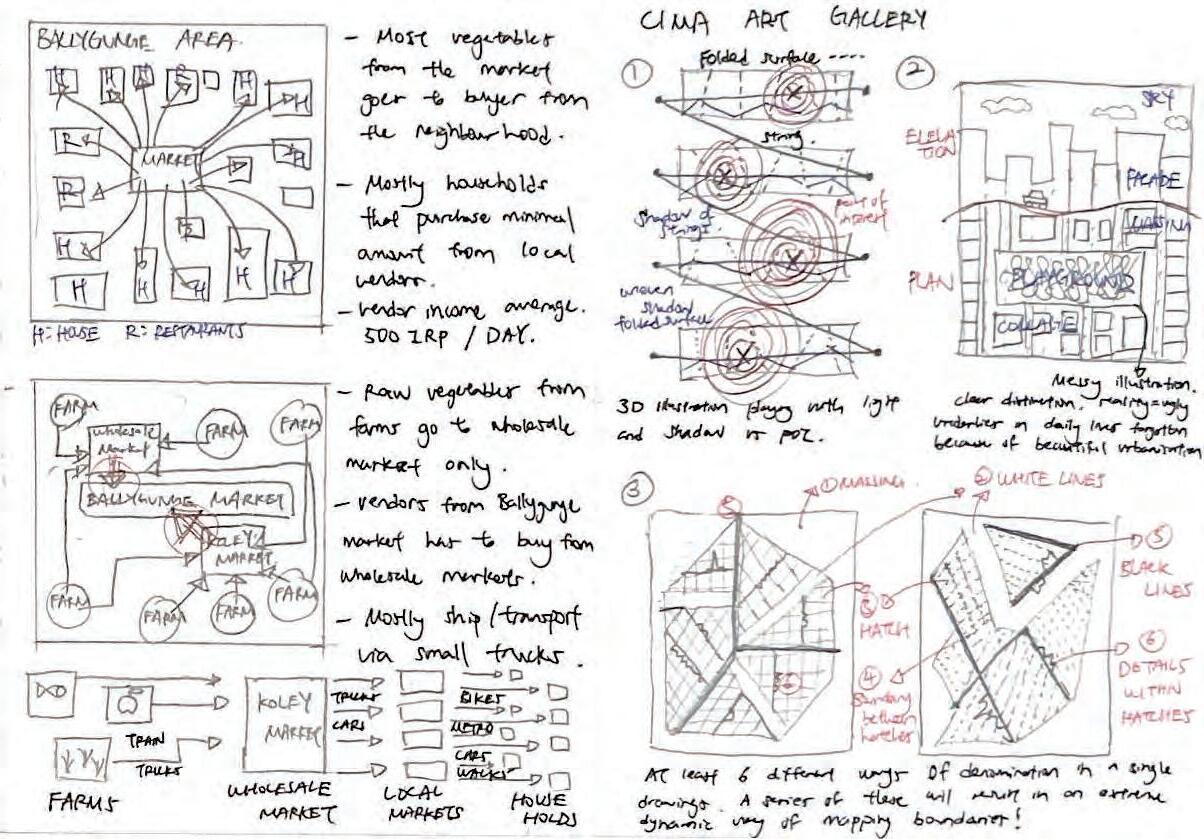 BALLYGUNGE AREA.
H
H
H
H
H
H
R
MARKET
H
R
H
H
H
H
H
H
H
H: HOUSE R: RESTAURANTS
- Most vegetables
from the market
goes to buyer from
the neighbourhood.
- Mostly households
that purchase minimal
amount from local
vendors.
- vendor income average.
500 IRP / DAY.
FARM
Wholesale
Market
FARM
FARM
BALLYGUNGE MARKET
KOLEY
MARKET
FARM
FARM
FARM
FARM
- Raw vegetables from
farms go to wholesale
market only.
- vendors from Ballygunge
market has to buy from
wholesale markets.
- Mostly ship/transport
via small trucks.
TRAIN
TRUCKS
KOLEY
MARKET
TRUCKS
CARS
BIKES
METRO
CARS
WALKS
FARMS
WHOLESALE
MARKET
LOCAL
MARKETS
HOUSE
HOLDS
CIMA ART GALLERY
1
Folded surface ----
string.
shadow of
strings
point of
interest
uneven
shadow
folded surface
3D illustration playing with light
and shadow vs POI.
2
SKY
ELEVA
TION
FACADE
MASSING
PLAN
PLAYGROUND
COLLAGE
Messy illustration.
clear distinction. reality=ugly
underlies in daily lives forgotten
because of beautiful urbanisation
3
① MASSING
② WHITE LINES
③
HATCH
④
Boundary
between
hatches
⑤
BLACK
LINES
⑥
DETAILS
WITHIN
HATCHES
At least 6 different ways of denomination in a single
drawings. A series of these will result in an extreme
dynamic way of mapping boundaries!